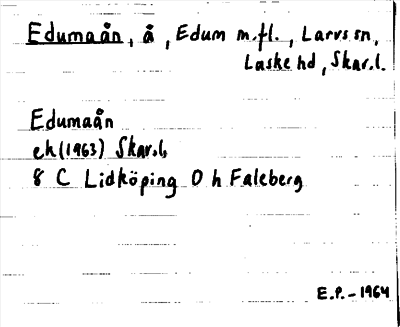 Edumaån, å, Edum m.fl., Larvs sn,
Laske hd, Skar.l.
Edumaån
ek (1963) Skar.l,
8 C Lidköping 0 h Faleberg
E.P. - 1964